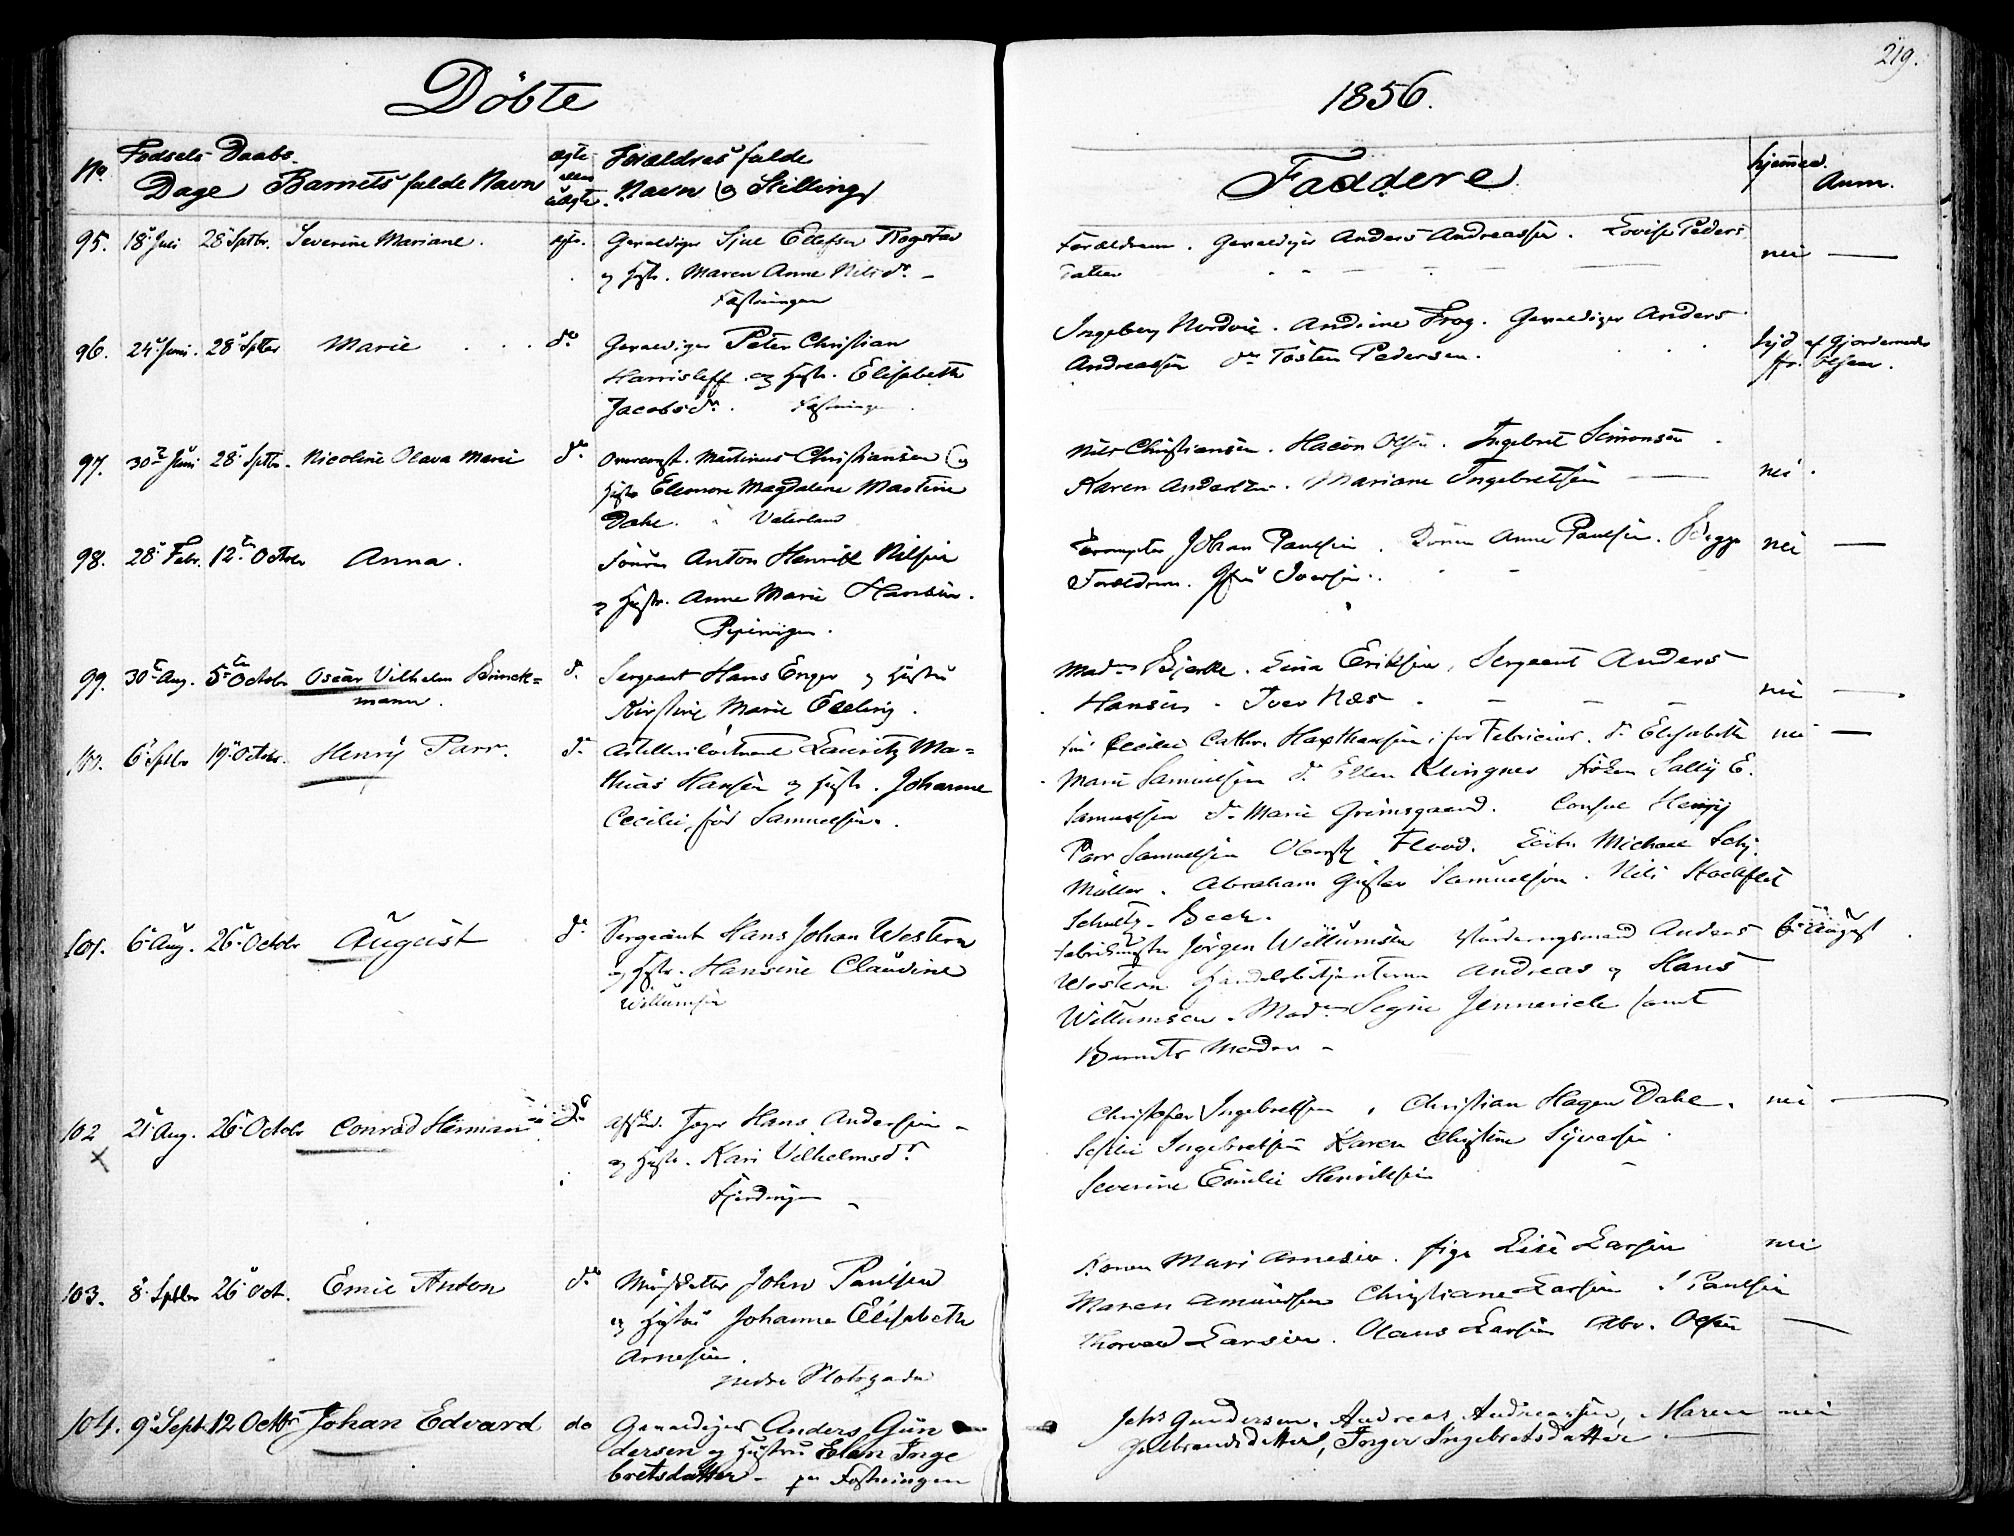 219.
Döbte
1856.
No
Födsels- Daabs-
Dage
Barnets fulde Navn
ægte eller uægte.
Forældres fulde
Navn og Stilling
Faddere
hjemmed.
Anm.
95. 18 Juli 28 Septbr. Severine Mariane. ægte. Gevaldiger Sjul Ellefsen Rogstad
og Hstr. Maren Anne Nilsdr. –
Fæstningen
Forældrene. Gevaldiger Anders Andreassen. Lovise Peders
datter
nei —
96. 24 Juni. 28 Septbr Marie do Gevaldiger Peter Christian
Harrisleff og Hstr. Elisabeth
Jacobsdr. Fæstningen
Ingeborg Nordvie. Andrine Frog. Gevaldiger Anders
Andreassen do Tosten Pedersen.
af Gjordemoder
Olsen.
97. 30 Juni 28 Septbr. Nicoline Olava Marie do Martinus Christiansen og
Hstr Eleonore Magdalene Martine
Dahl. Vaterland
Nils Christiansen. Hacon Olsen. Ingebret Simonsen
Karen Andersen. Mariane Ingebretsen — nei.
98. 28 Febr. 12 Octobr Anna. Anton Henrik Nilsen
og Hstr. Anne Marie Hansen.
Pipervigen.
Johan Paulsen. Anne Paulsen. Begge
Forældrene. Iversen.
nei —
99. 30 Aug. 5 Octobr Oscar Vilhelm Brinck=
mann.
d. Sergeant Hans Enger og Hustru
Kirstine Marie Elling.
Madm Bjerke. Lina Eriksen, Sergeant Anders
Hansen. Iver Næs.
nei —
100. 6 Septbr 19 Octobr. Henry Parr. do Lauritz Ma=
thias Hansen og Hustr. Johanne
Cecilie, föd Samuelsen.
Cecilie Cathr. Haxthausen, Fabricius. do Elisabeth nei —
Marie Samuelsen do Ellen Klingner Sally E.
Samuelsen do Marie Grimsgaard. Consul Henry
Parr Samuelsen Oberst Flood. Michael Schj.
Müller. Abraham Gustav Samuelsen. Nils Stockflet
Schultz. Beck.
101. 6 Aug. 26 Octobr August do Sergeant Hans Johan Western
og Hstr. Hansine Claudine
Willumsen
Jörgen Willumsen Anders 6 August.
Western Handelsbetjenterne Andreas og Hans
Willumsen. Madm Signe Jennerich samt
Barnets Moder –
102 21 Aug. 26 Octobr Conrad Herman do Jæger Hans Andersen –
X
og Hstr. Kari Vilhelmsdr
Fjerdingen –
Christofer Ingebretsen, Christian Hagen Dahl. nei —
Ingebretsen Karen Christine Syversen.
Severine Emilie Henriksen
103. 8 Septbr 26 Oct. Emil Anton do John Paulsen
og Hustru Johanne Elisabeth
Arnesen.
nedre Slotsgade
Karen Mari Arnesen. Pige Lise Larsen nei
Maren Amundsen Christiane Larsen Paulsen
Thorvald Larsen. Olaus Larsen Abr. Olsen —
104. 9 Sept. 12 Octbr Johan Edvard do Gevaldiger Anders Gun
dersen og Hustru Elen Inge
bretsdatter – paa Fæstningen
Johs Gundersen, Andreas Andreassen, Maren nei
Gulbrandsdatter, Torger Ingebretsdatter. —